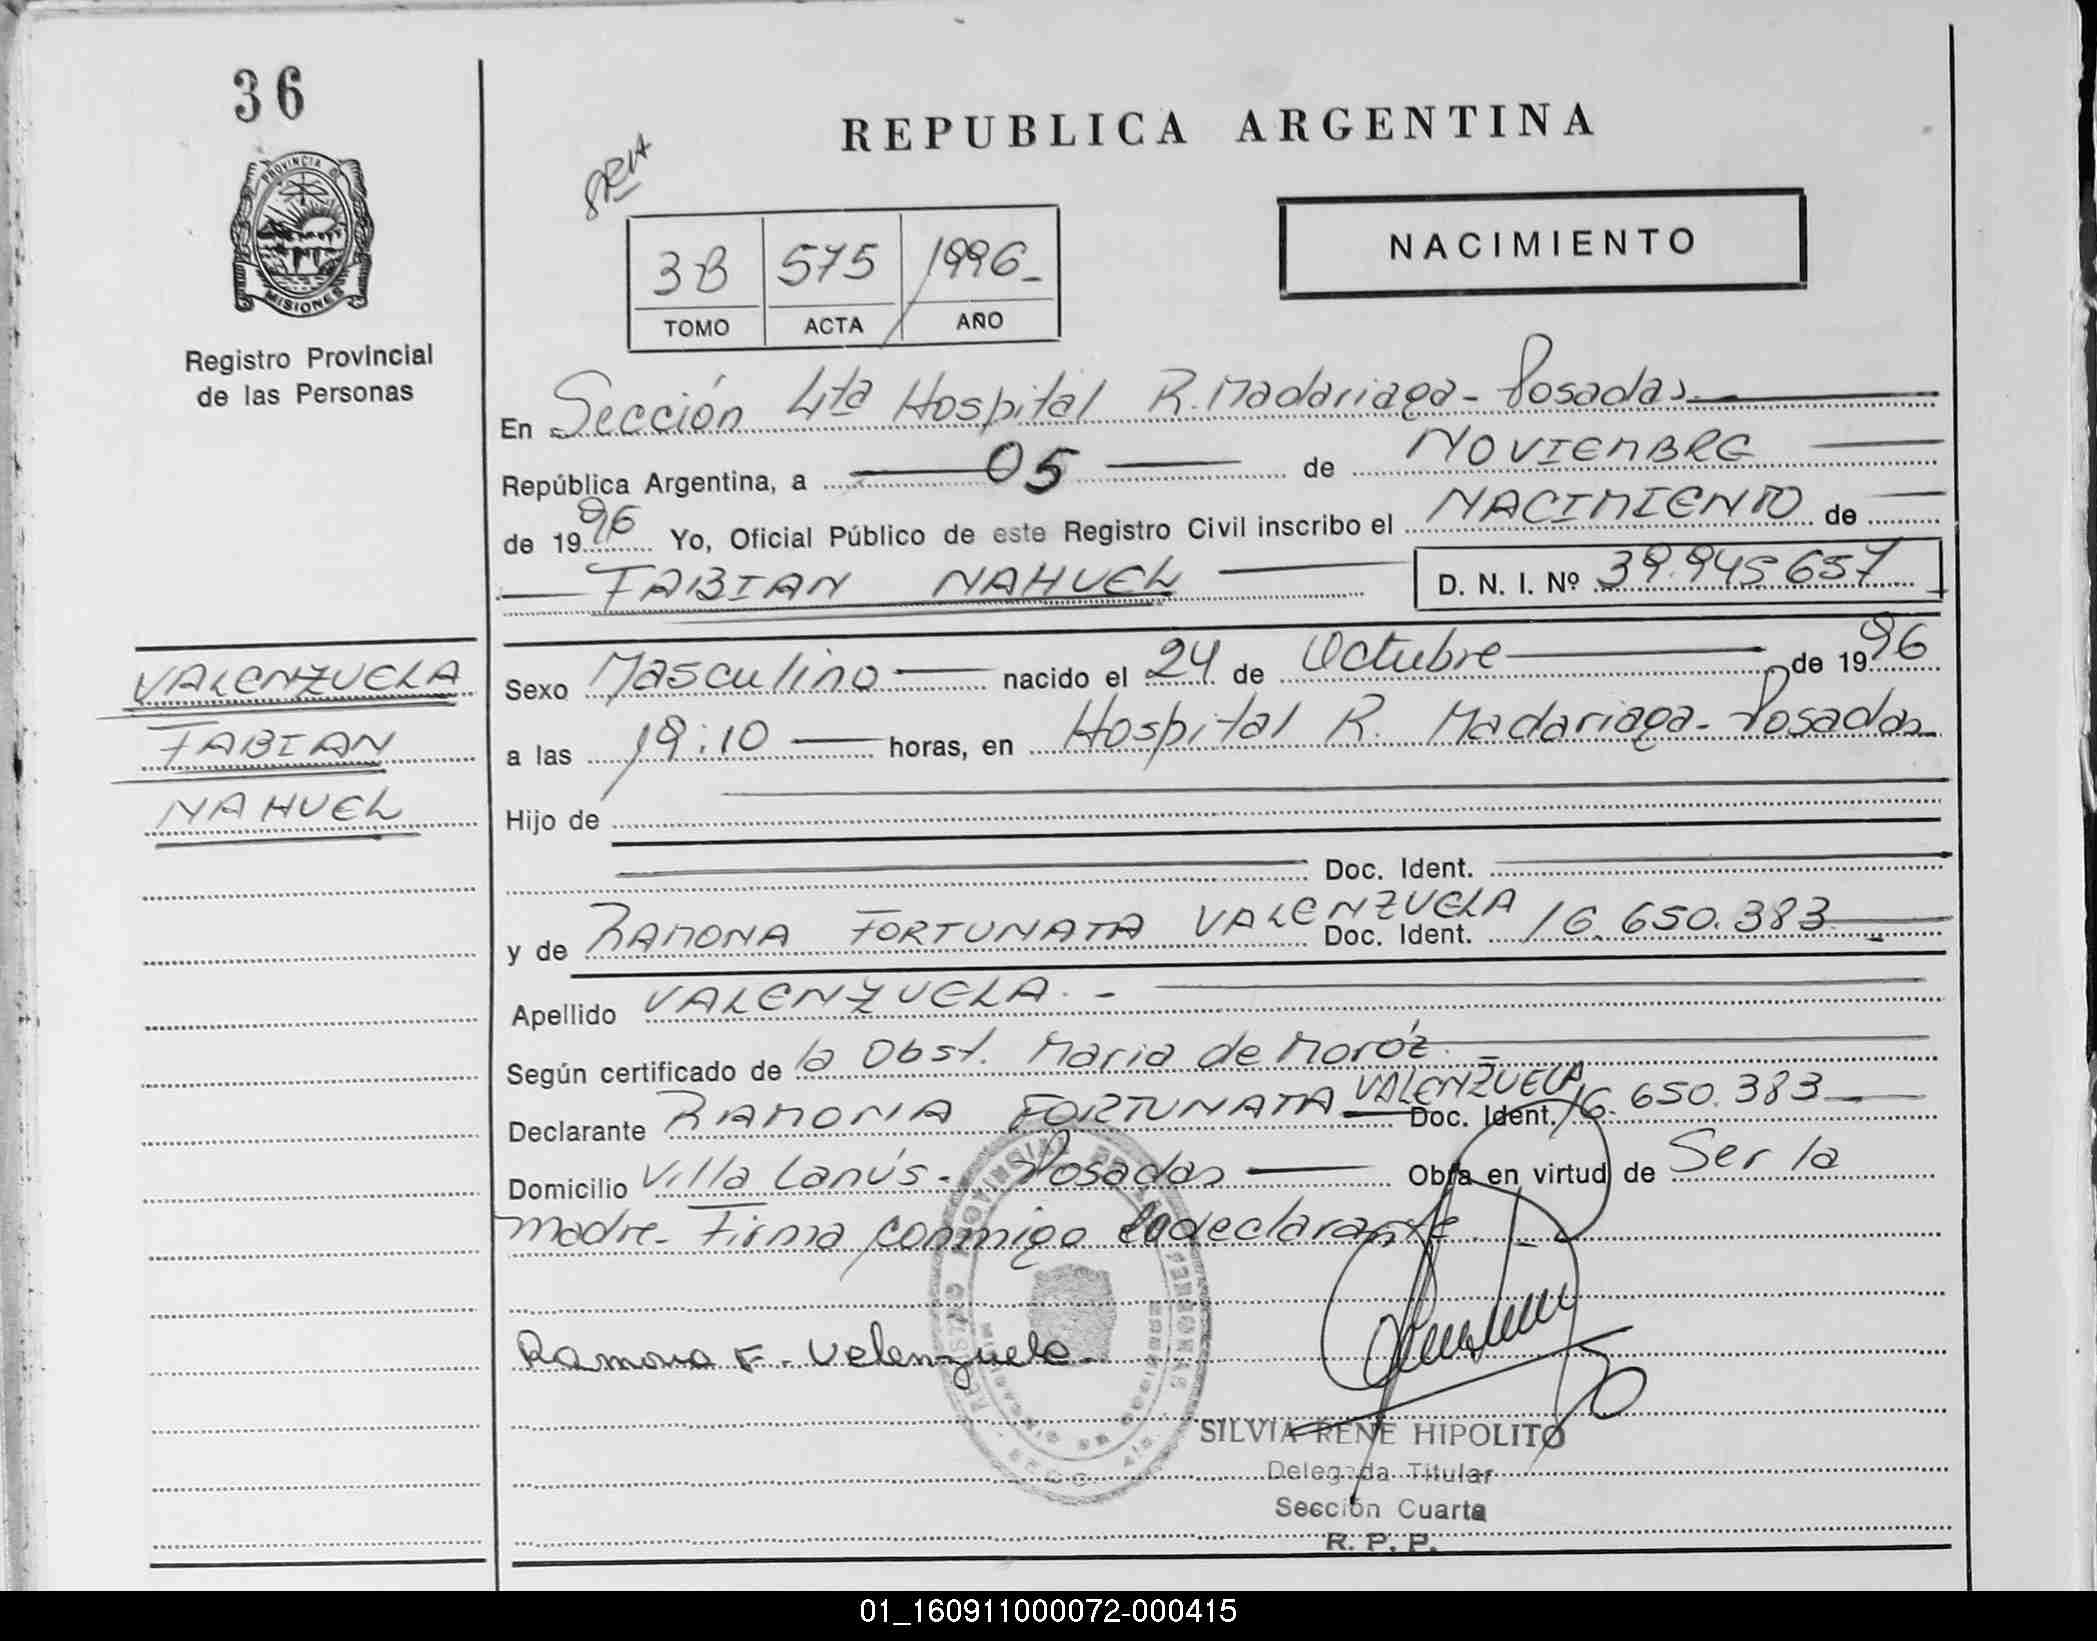 36
PROVINCIA D
MISIONES
Registro Provincial
de las Personas
REPUBLICA ARGENTINA
NACIMIENTO
3B 575 1996_
TOMO ACTA AÑO
En Sección 4ta Hospital R. Madariaga - Posadas
República Argentina, a 05 de NOVIEMBRE
de 1996 Yo, Oficial Público de este Registro Civil inscribo el NACIMIENTO de
FABIAN NAHUEL D. N. I. Nº 39.945.657
VALENZUELA
FABIAN
NAHUEL
Sexo Masculino nacido el 24 de Octubre de 1996
a las 19:10 horas, en Hospital R. Madariaga - Posadas
Hijo de
Doc. Ident.
y de RAMONA FORTUNATA VALENZUELA Doc. Ident. 16.650.383
Apellido VALENZUELA. -
Según certificado de la Obst. Maria de Moróz. -
Declarante RAMONA FORTUNATA VALENZUELA Doc. Ident. 16.650.383
Domicilio Villa Lanús - Posadas Obra en virtud de Ser la
madre - Firma conmigo la declarante.
Ramona F. Valenzuela
SILVIA RENE HIPOLITO
Delegada Titular
Sección Cuarta
R. P. P.
01_160911000072-000415